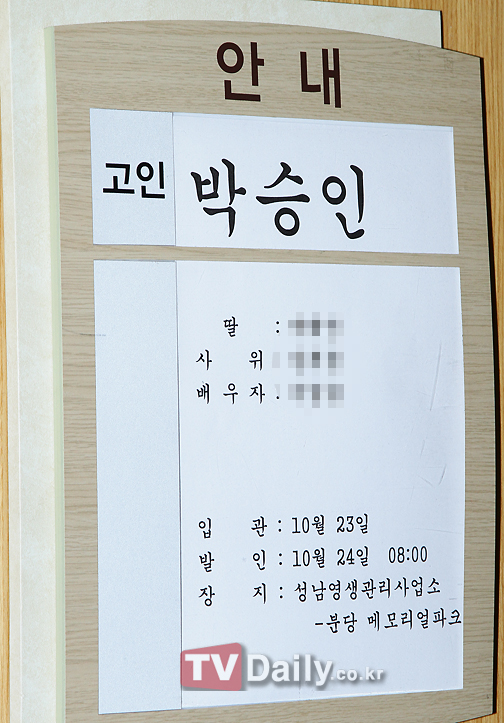 안 내
고인 박승인
딸 :
사 위 :
배우자 :
입 관 : 10월 23일
발 인 : 10월 24일 08:00
장 지 : 성남영생관리사업소
-분당 메모리얼파크
TVDaily.co.kr